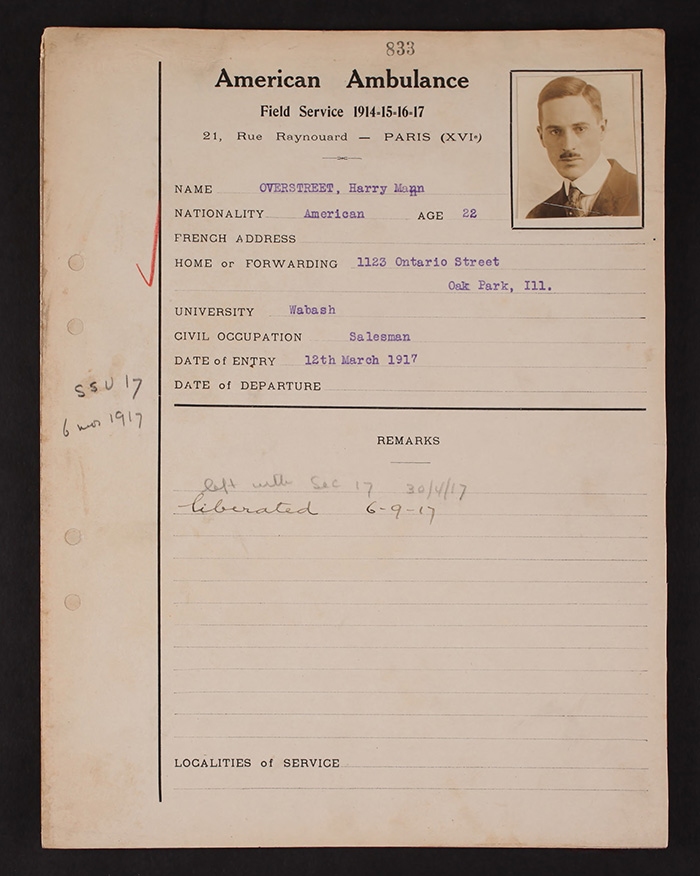 833
American Ambulance
Field Service 1914-15-16-17
21, Rue Raynouard — PARIS (XVIe)
NAME OVERSTREET, Harry Mann
NATIONALITY American AGE 22
FRENCH ADDRESS
HOME or FORWARDING 1123 Ontario Street
Oak Park, Ill.
UNIVERSITY Wabash
CIVIL OCCUPATION Salesman
DATE of ENTRY 12th March 1917
DATE of DEPARTURE
SSU 17
6 mos 1917
REMARKS
left with Sec 17 30/4/17
liberated 6-9-17
LOCALITIES of SERVICE